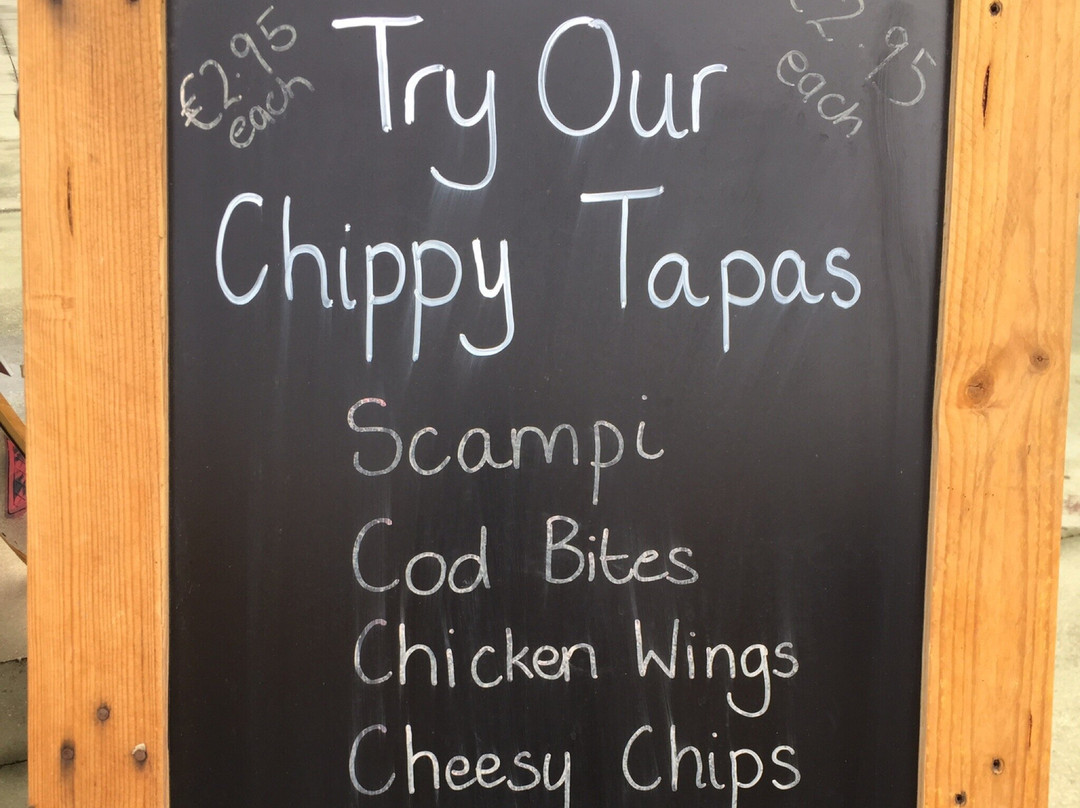 £2.95
each
£2.95
each
Try Our
Chippy Tapas
Scampi
Cod Bites
Chicken Wings
Cheesy Chips